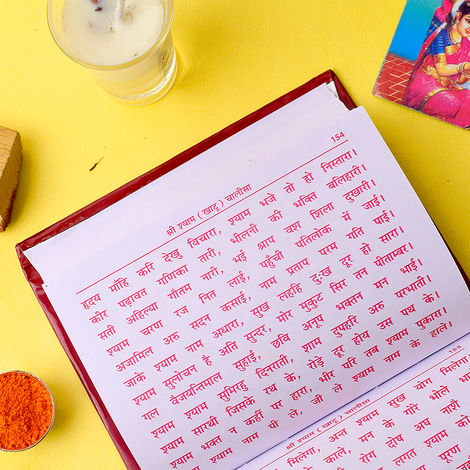 154
श्री श्याम ( खाटू ) चालीसा
हृदय माँहि करि देखु विचारा, श्याम भजे तो हो निस्तारा।
कीर पढ़ावत गणिका तारी, भीलनी की भक्ति बलिहारी।
सती अहिल्या गौतम नारी, भई श्राप वश शिला दुखारी।
श्याम चरण रज नित लाई, पहुँची पतिलोक में जाई।
अजामिल अरु सदन कसाई, नाम प्रताप परम गति पाई।
जाके श्याम नाम अधारा, सुख लहहि दुःख दूर हो सारा।
श्याम सुलोचन है अति सुन्दर, मोर मुकुट सिर तन पीताम्बर।
गल वैजयन्तिमाल सुहाई, छवि अनूप भक्तन मन भाई।
श्याम श्याम सुमिरहु दिनराती, शाम दुपहरि अरु परभाती।
श्याम सारथी जिसके रथ के, रोड़े दूर होय उस पथ के।
श्याम भक्त न कहीं पर हारा, भीर परि तब श्याम पुकारा।
श्याम नाम पी ले, जी ले श्याम नाम के हाले।
155
श्री श्याम ( खाटू ) चालीसा
अन्त श्याम सुख योग
मन के गोरे भोले
काले, दोष अरु
रोग
पूरण